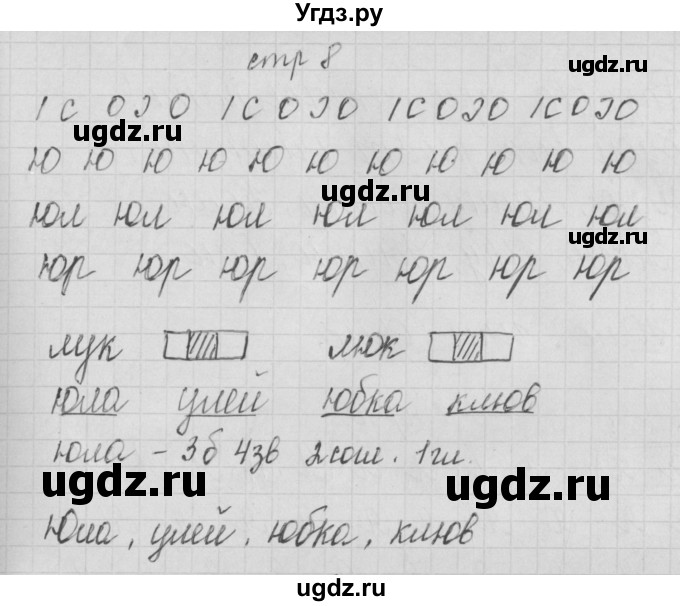 Угдз.ру
стр 8
ugdz.ru
ı c o ɔ o ı c o ɔ o ı c o ɔ o ı c o ɔ o
ugdz.ru
ю ю ю ю ю ю ю ю ю ю ю
ugdz.ru
юл юл юл юл юл юл юл
ugdz.ru
юр юр юр юр юр юр юр
лук люк
ugdz.ru
юла улей юбка клюв
юла - 3б 4зв 2сог. 2гл.
ugdz.ru ugdz.ru
Юла, улей, юбка, клюв
ugdz.ru